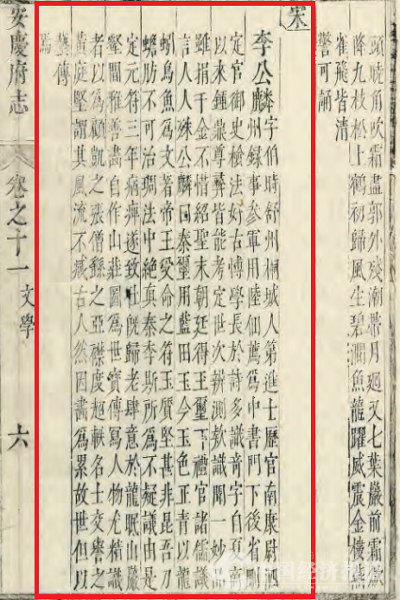 頭曉角吹霜盡郭外殘潮帶月迴又七葉巖前霜
降九枝松上鶴初歸風生碧澗魚龍躍威震金樓燕
雀飛皆清
警可誦
宋
李公麟 字伯時舒州桐城人第進士歷官南康尉泗
州錄事參軍用陸佃薦為中書門下後省刪
定官御史檢法好古博學長於詩多識奇字自夏商
以來鍾鼎尊彝皆能考定世次辨測款識聞一妙品
雖捐千金不惜紹聖末朝廷得玉璽下禮官諸儒議
言人人殊公麟曰秦璽用藍田玉今玉色正青以龍
蚓鳥魚為文著帝王受命之符玉質堅甚非昆吾刀
蟾肪不可治琱法中絕真秦李斯所為不疑議由是
定元符三年病痺遂致仕既歸老肆意於龍眠山巖
壑間雅善畵自作山莊圖為世寶傳寫人物尤精識
者以為顧凱之張僧繇之亞襟度超軼名士交譽之
黃庭堅謂其風流不減古人然因畵為累故世但以
藝傳
焉
安慶府志 卷之十一 文學 六